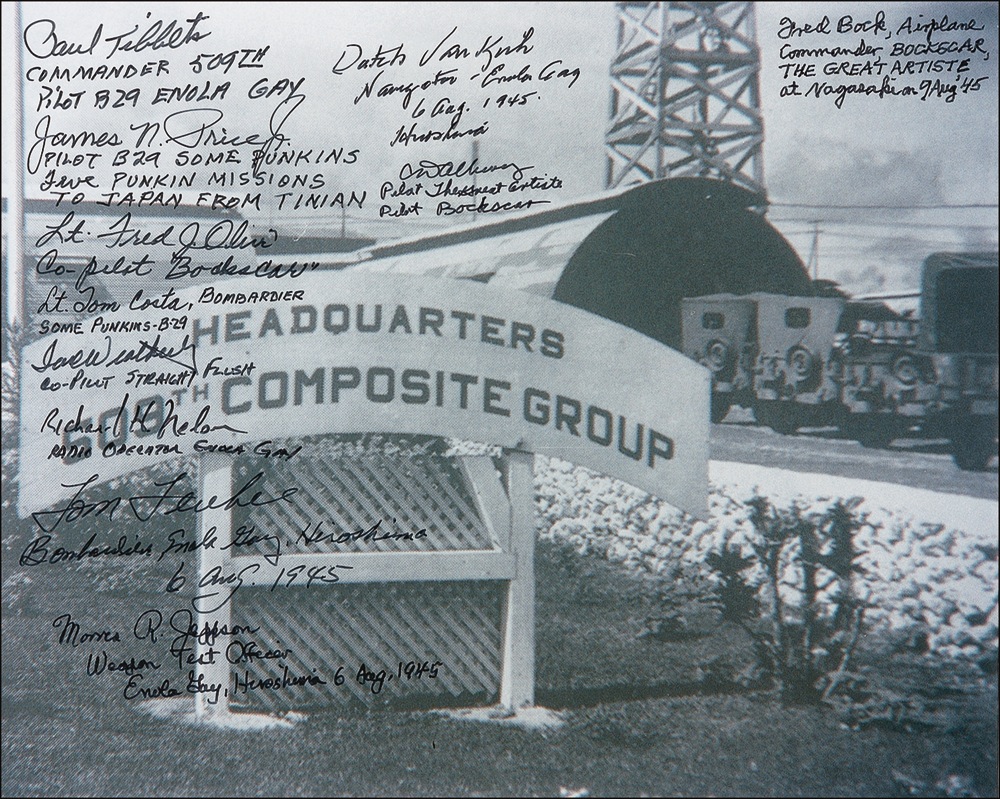 Paul Tibbets
COMMANDER 509TH
PILOT B29 ENOLA GAY
James N. Price Jr.
PILOT B29 SOME PUNKINS
FIVE PUNKIN MISSIONS
TO JAPAN FROM TINIAN
Lt. Fred J. Olivi
Co-pilot "Bockscar"
Lt. Tom Costa, BOMBARDIER
SOME PUNKINS-B-29
CO-PILOT STRAIGHT FLUSH
Richard H. Nelson
RADIO OPERATOR ENOLA GAY
Tom Ferebee
Bombardier Enola Gay, Hiroshima
6 Aug. 1945
Morris R. Jeppson
Weapon Test Officer
Enola Gay, Hiroshima 6 Aug, 1945
Dutch Van Kirk
Navigator - Enola Gay
6 Aug. 1945.
Hiroshima
Pilot The Great Artiste
Pilot Bockscar
Fred Bock, Airplane
Commander BOCKSCAR,
THE GREAT ARTISTE
at Nagasaki on 9 Aug '45
HEADQUARTERS
509TH COMPOSITE GROUP